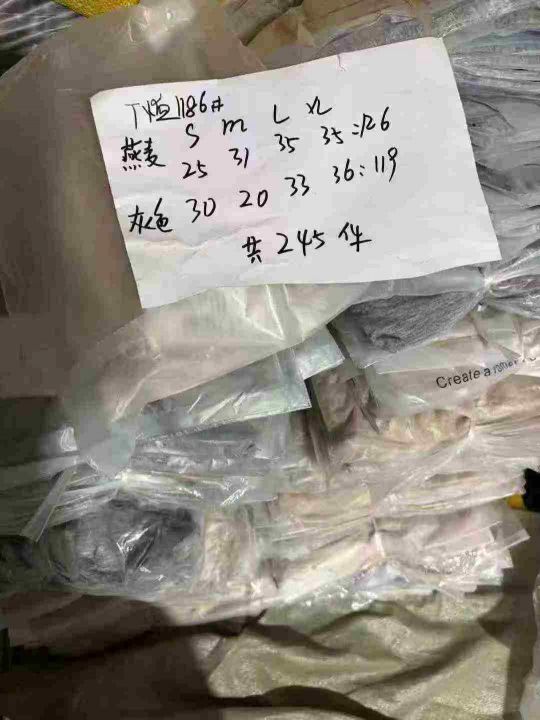 1186#
S M L XL
燕麦 25 31 35 35:126
灰色 30 20 33 36:119
共 245 件
Create a